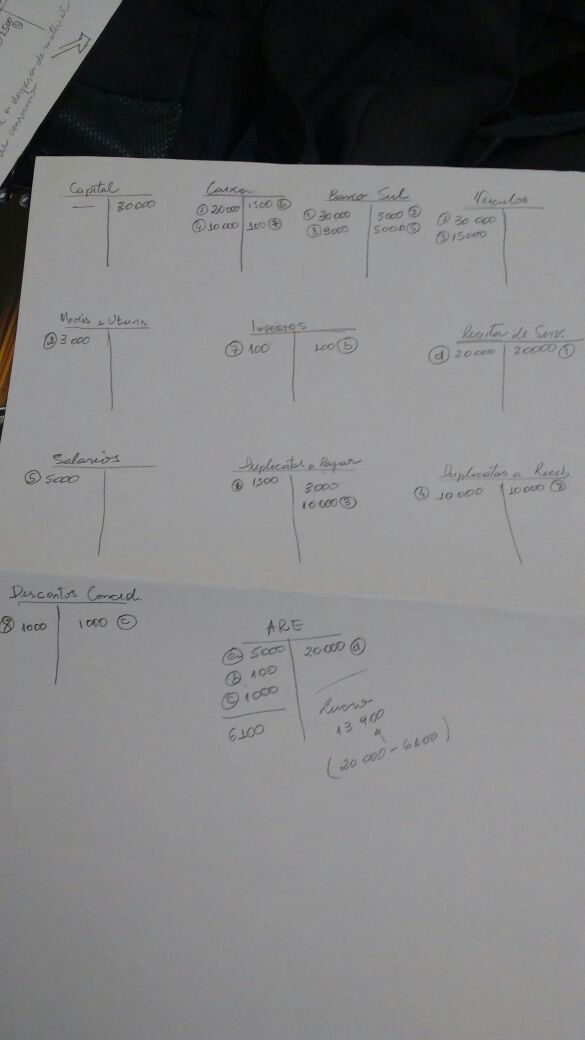 2500
a despesa de material
de consumo
Capital
— 30000
Caixa
① 20000 1500 ⑥
④ 10000 100 ⑦
Banco Sul
① 30000 5000 ③
⑧ 9000 5000 ⑤
Veiculos
① 30 000
③ 15000
Moveis e Utens
② 3 000
Impostos
⑦ 100 100 ⓑ
Receita de Serv.
ⓓ 20000 20000 ①
Salarios
⑤ 5000
Duplicatas a Pagar
⑥ 1500 3000
10000 ③
Duplicatas a Receb.
④ 10 000 10000 ⑧
Descontos Conced.
⑧ 1000 1000 ⓒ
ARE
ⓐ 5000 20000 ⓓ
ⓑ 100
ⓒ 1000
6100
Lucro
13 900
(20 000 - 6100)